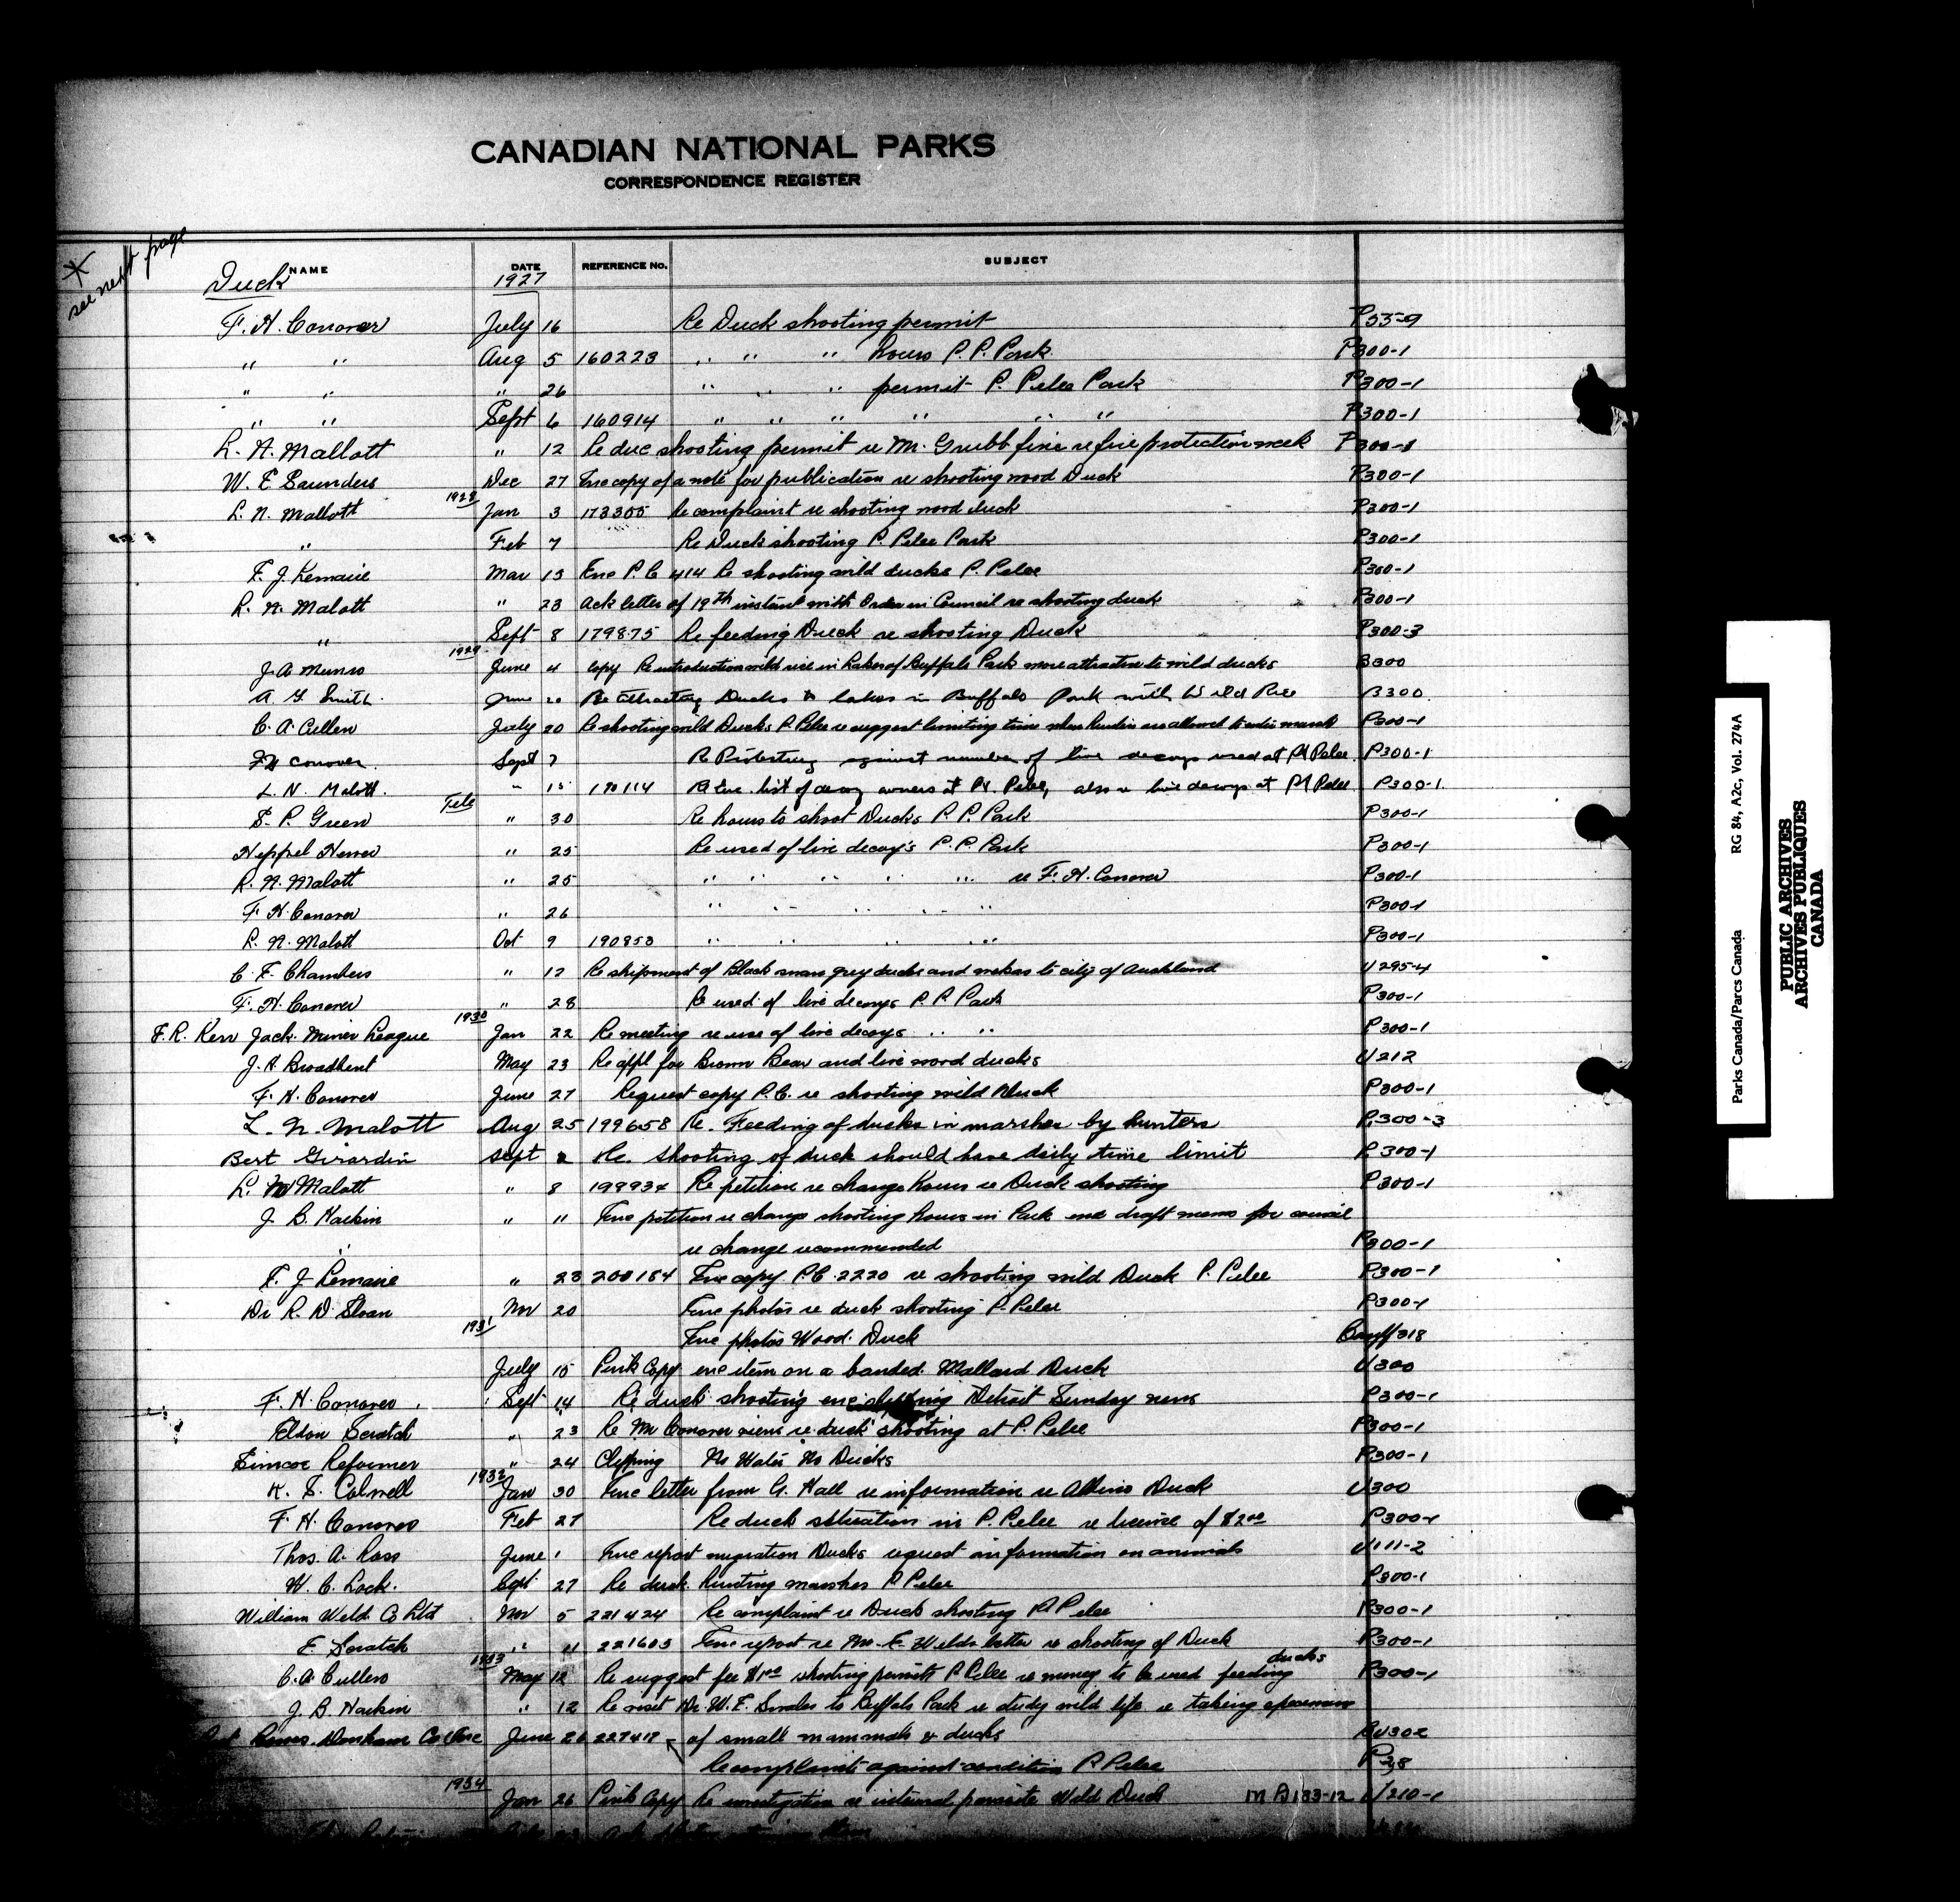 CANADIAN NATIONAL PARKS
CORRESPONDENCE REGISTER
* see next page
NAME DATE REFERENCE No. SUBJECT
Duck 1927
F. H. Conover July 16 Re Duck shooting permit P55-9
" " Aug 5 160223 " " " hours P. P. Park P300-1
" " " 26 " " " permit P. Pelee Park P300-1
" " Sept 6 160914 " " " " " " P300-1
L. N. Mallott " 12 Re duc shooting permit re M. Grubb fine re fire protection week P300-1
W. E Saunders Dec 27 Enc copy of a note for publication re shooting wood Duck P300-1
1928
L. N. Mallott Jan 3 173355 Re complaint re shooting wood duck P300-1
" Feb 7 Re Duck shooting P. Pelee Park P300-1
F. J. Lemaire Mar 13 Enc P. C 414 Re shooting wild ducks P. Pelee P300-1
L. N. Malott " 23 Ack letter of 19th instant with Order in Council re shooting duck P300-1
" Sept 8 179875 Re feeding Duck re shooting Duck P300-3
1929
J. A Munro June 4 copy Re introduction wild rice in Lakes of Buffalo Park more attractive to wild ducks B300
A G Smith June 20 Re attracting Ducks to lakes in Buffalo Park with Wild Rice B300
C. A Cullen July 20 Re shooting wild Ducks P. Pelee re suggest limiting time when hunters are allowed to enter marsh P300-1
F H Conover Sept 7 Re Protesting against number of live decoys used at Pt Pelee P300-1
L. N. Malott " 15 190114 Re Enc. list of decoy owners at Pt. Pelee, also re live decoys at Pt Pelee P300-1
Tele
S. P. Green " 30 Re hours to shoot Ducks P. P. Park P300-1
" 25 Re used of live decoy's P. P. Park P300-1
L. N. Malott " 25 " " " " " re F. H. Conover P300-1
F. H. Conover " 26 " " " " " P300-1
L. N. Malott Oct 9 190853 " " " " P300-1
C. F. Chambers " 12 Re shipment of Black swans grey ducks and wekas to city of Auckland U295-4
F. H. Conover " 28 Re used of live decoys P. P. Park P300-1
1930
F. R. Kerr Jack Miner League Jan 22 Re meeting re use of live decoys " " P300-1
J. H. Broadbent May 23 Re appl for Brown Bear and live wood ducks U212
F. H. Conover June 27 Request copy P. C. re shooting wild Duck P300-1
L. N. Malott Aug 25 199658 Re. Feeding of ducks in marshes by hunters P.300-3
Bert Girardin Sept 2 Re. Shooting of duck should have daily time limit P.300-1
L. N Malott " 8 199934 Re petition re change hours re Duck shooting P300-1
J. B. Harkin " 11 Enc petition re change shooting hours in Park enc draft memo for council
" re change recommended P300-1
F. J Lemaire " 23 200184 Enc copy P. C. 2220 re shooting wild Duck P. Pelee P300-1
Dr R. D. Sloan Nov 20 Enc photos re duck shooting P. Pelee P300-1
1931
Enc photos Wood Duck Banff 318
July 15 Pink Copy enc item on a banded Mallard Duck U300
F. H. Conover Sept 14 Re duck shooting enc clipping Detroit Sunday news P300-1
Eldon Scratch " 23 Re Mr Conover views re duck shooting at P. Pelee P300-1
Simcoe Reformer " 24 Clipping No Water No Ducks P300-1
1932
K. S. Colwell Jan 30 Enc letter from G. Hall re information re Albino Duck U300
F. H. Conover Feb 27 Re duck situation in P. Pelee re license of $2.00 P300-1
Thos. A. Ross June 1 Enc report migration Ducks request information on animals U111-2
W. C. Lock. Sept 27 Re duck hunting marshes P Pelee P300-1
William Weld Co Ltd Nov 5 221424 Re complaint re Duck shooting Pt Pelee P300-1
E. Scratch " 11 221603 Enc report re Mr. E. Welds letter re shooting of Duck P300-1
1933
C. A Cullen May 12 Re suggest fee $1.00 shooting permits P. Pelee re money to be used feeding ducks P300-1
J. B. Harkin " 12 Re visit Dr. W. E. Swales to Buffalo Park re study wild life re taking specimens
June 26 227417 of small mammals & ducks BU302
Re complaints against condition P. Pelee P28
1934
Jan 26 Pink Copy Re investigation re internal parasite Wild Duck M B133-12 U210-1
Parks Canada/Parcs Canada RG 84, A2c, Vol. 274A
PUBLIC ARCHIVES
ARCHIVES PUBLIQUES
CANADA